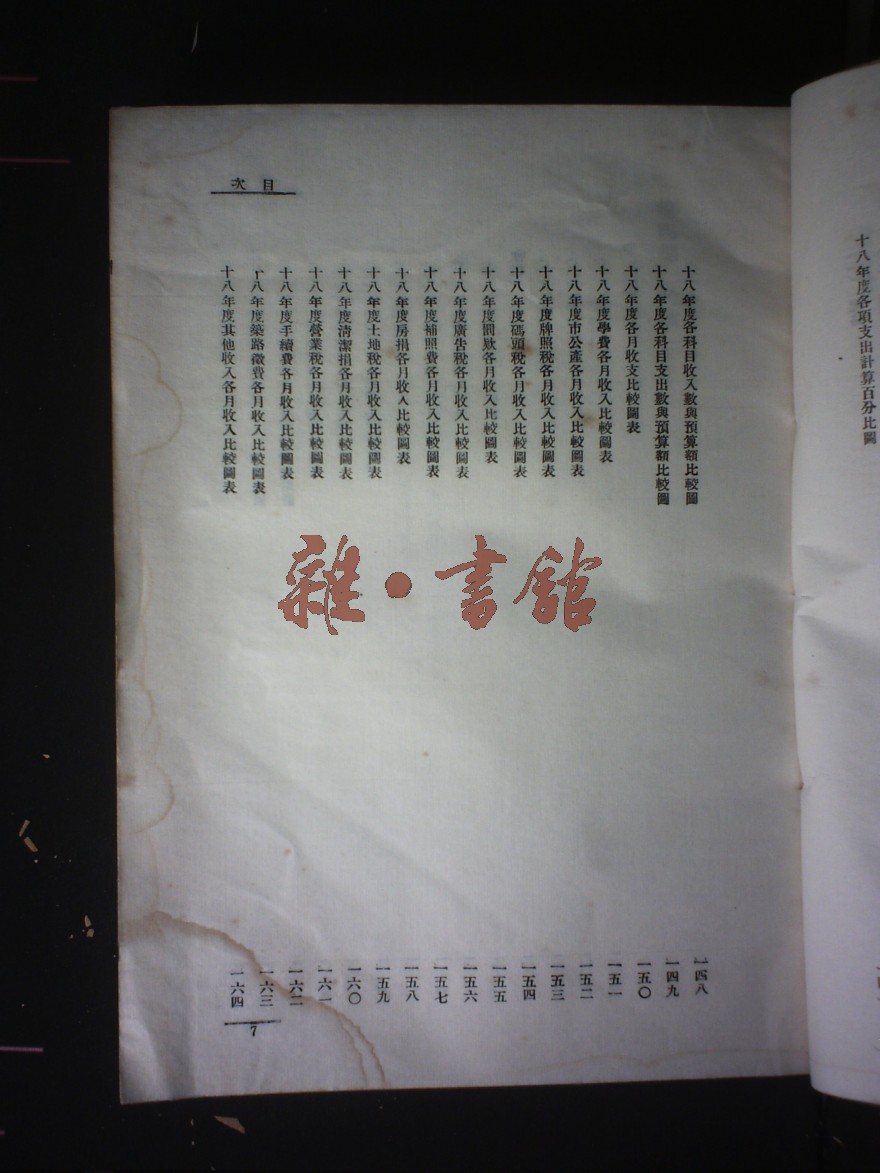 目次
十八年度各科目收入數與預算額比較圖 一四八
十八年度各科目支出數與預算額比較圖 一四九
十八年度各月收支比較圖表 一五〇
十八年度學費各月收入比較圖表 一五一
十八年度市公產各月收入比較圖表 一五二
十八年度牌照稅各月收入比較圖表 一五三
十八年度碼頭稅各月收入比較圖表 一五四
十八年度罰款各月收入比較圖表 一五五
十八年度廣告稅各月收入比較圖表 一五六
十八年度補照費各月收入比較圖表 一五七
十八年度房捐各月收入比較圖表 一五八
十八年度土地稅各月收入比較圖表 一五九
十八年度清潔捐各月收入比較圖表 一六〇
十八年度營業稅各月收入比較圖表 一六一
十八年度手續費各月收入比較圖表 一六二
十八年度築路徵費各月收入比較圖表 一六三
十八年度其他收入各月收入比較圖表 一六四
7
雜·書館
十八年度各項支出計算百分比圖